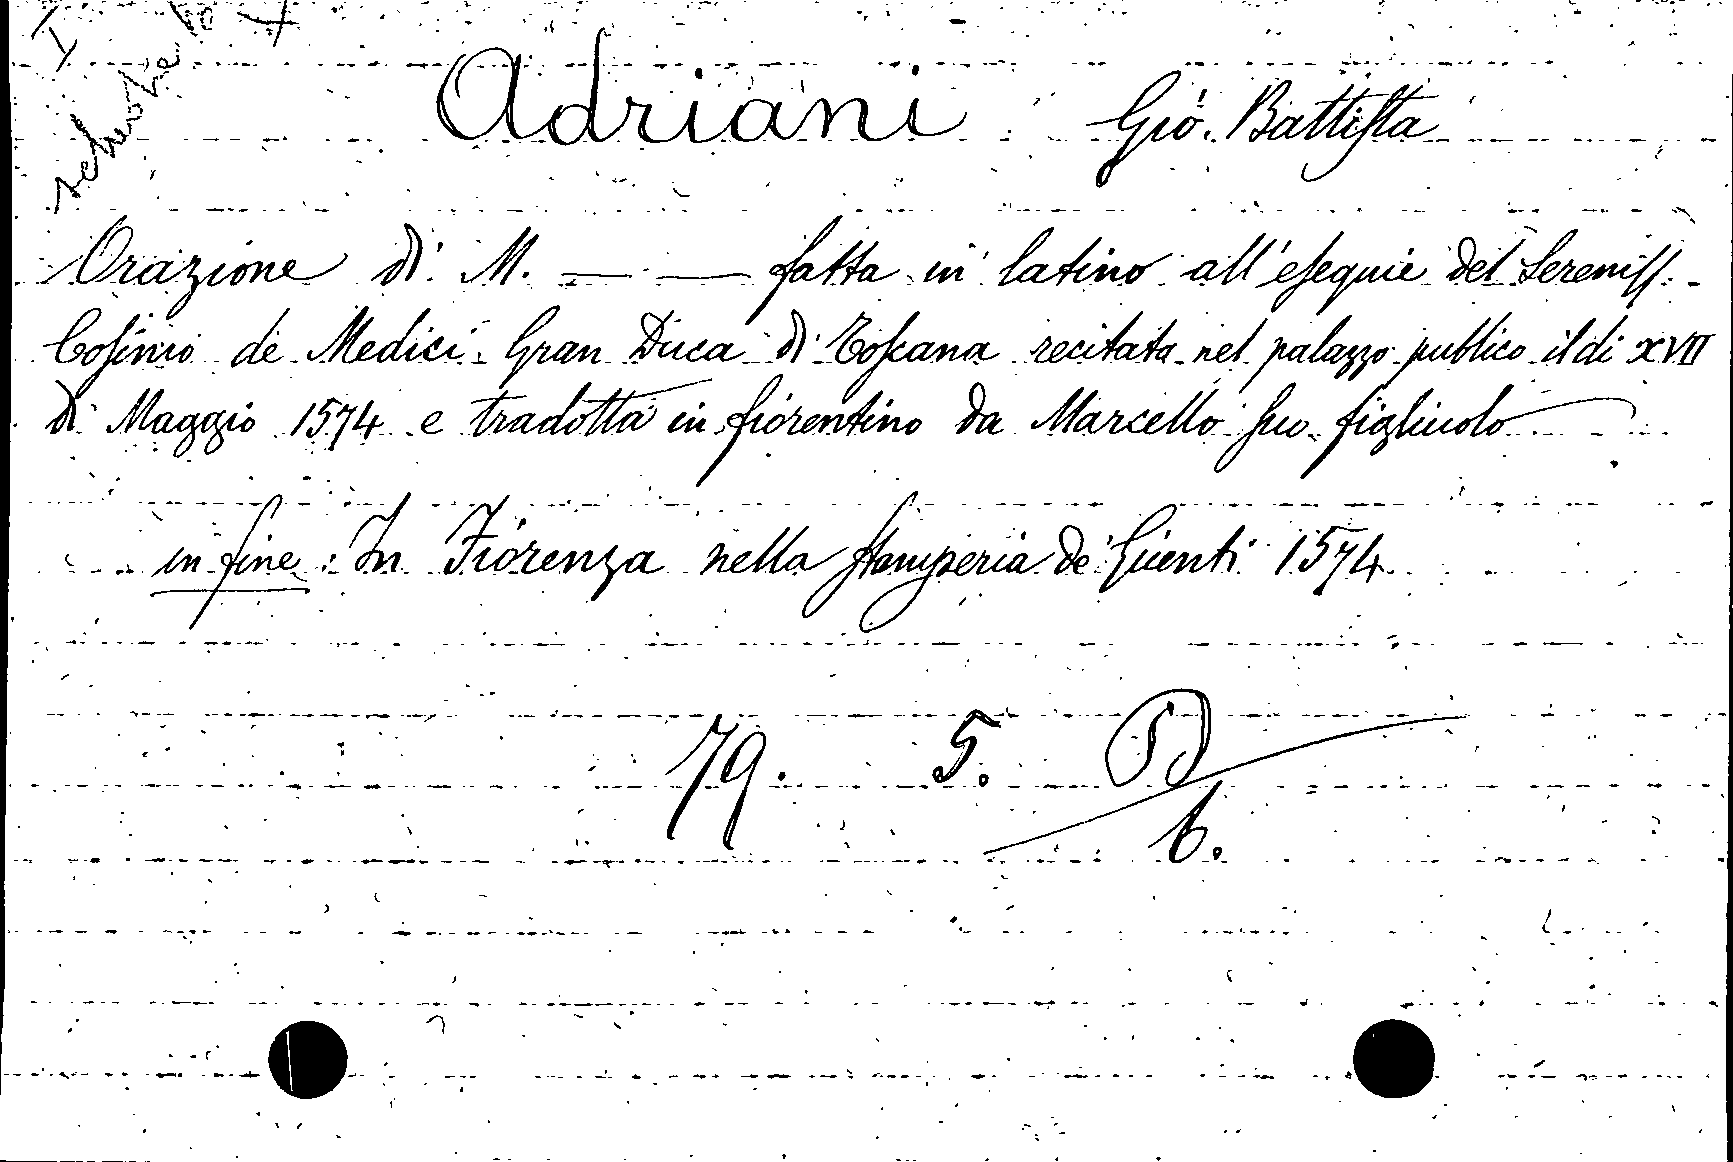 Adriani Gio. Battista
Orazione di M. — — fatta in latino all'esequie del Sereniss.
Cosimo de Medici Gran Duca di Toscana recitata nel palazzo publico il di XVII
di Maggio 1574 e tradotta in fiorentino da Marcello suo figliuolo
in fine: In Fiorenza nella stamperia de Giunti 1574
79. 5.
6.